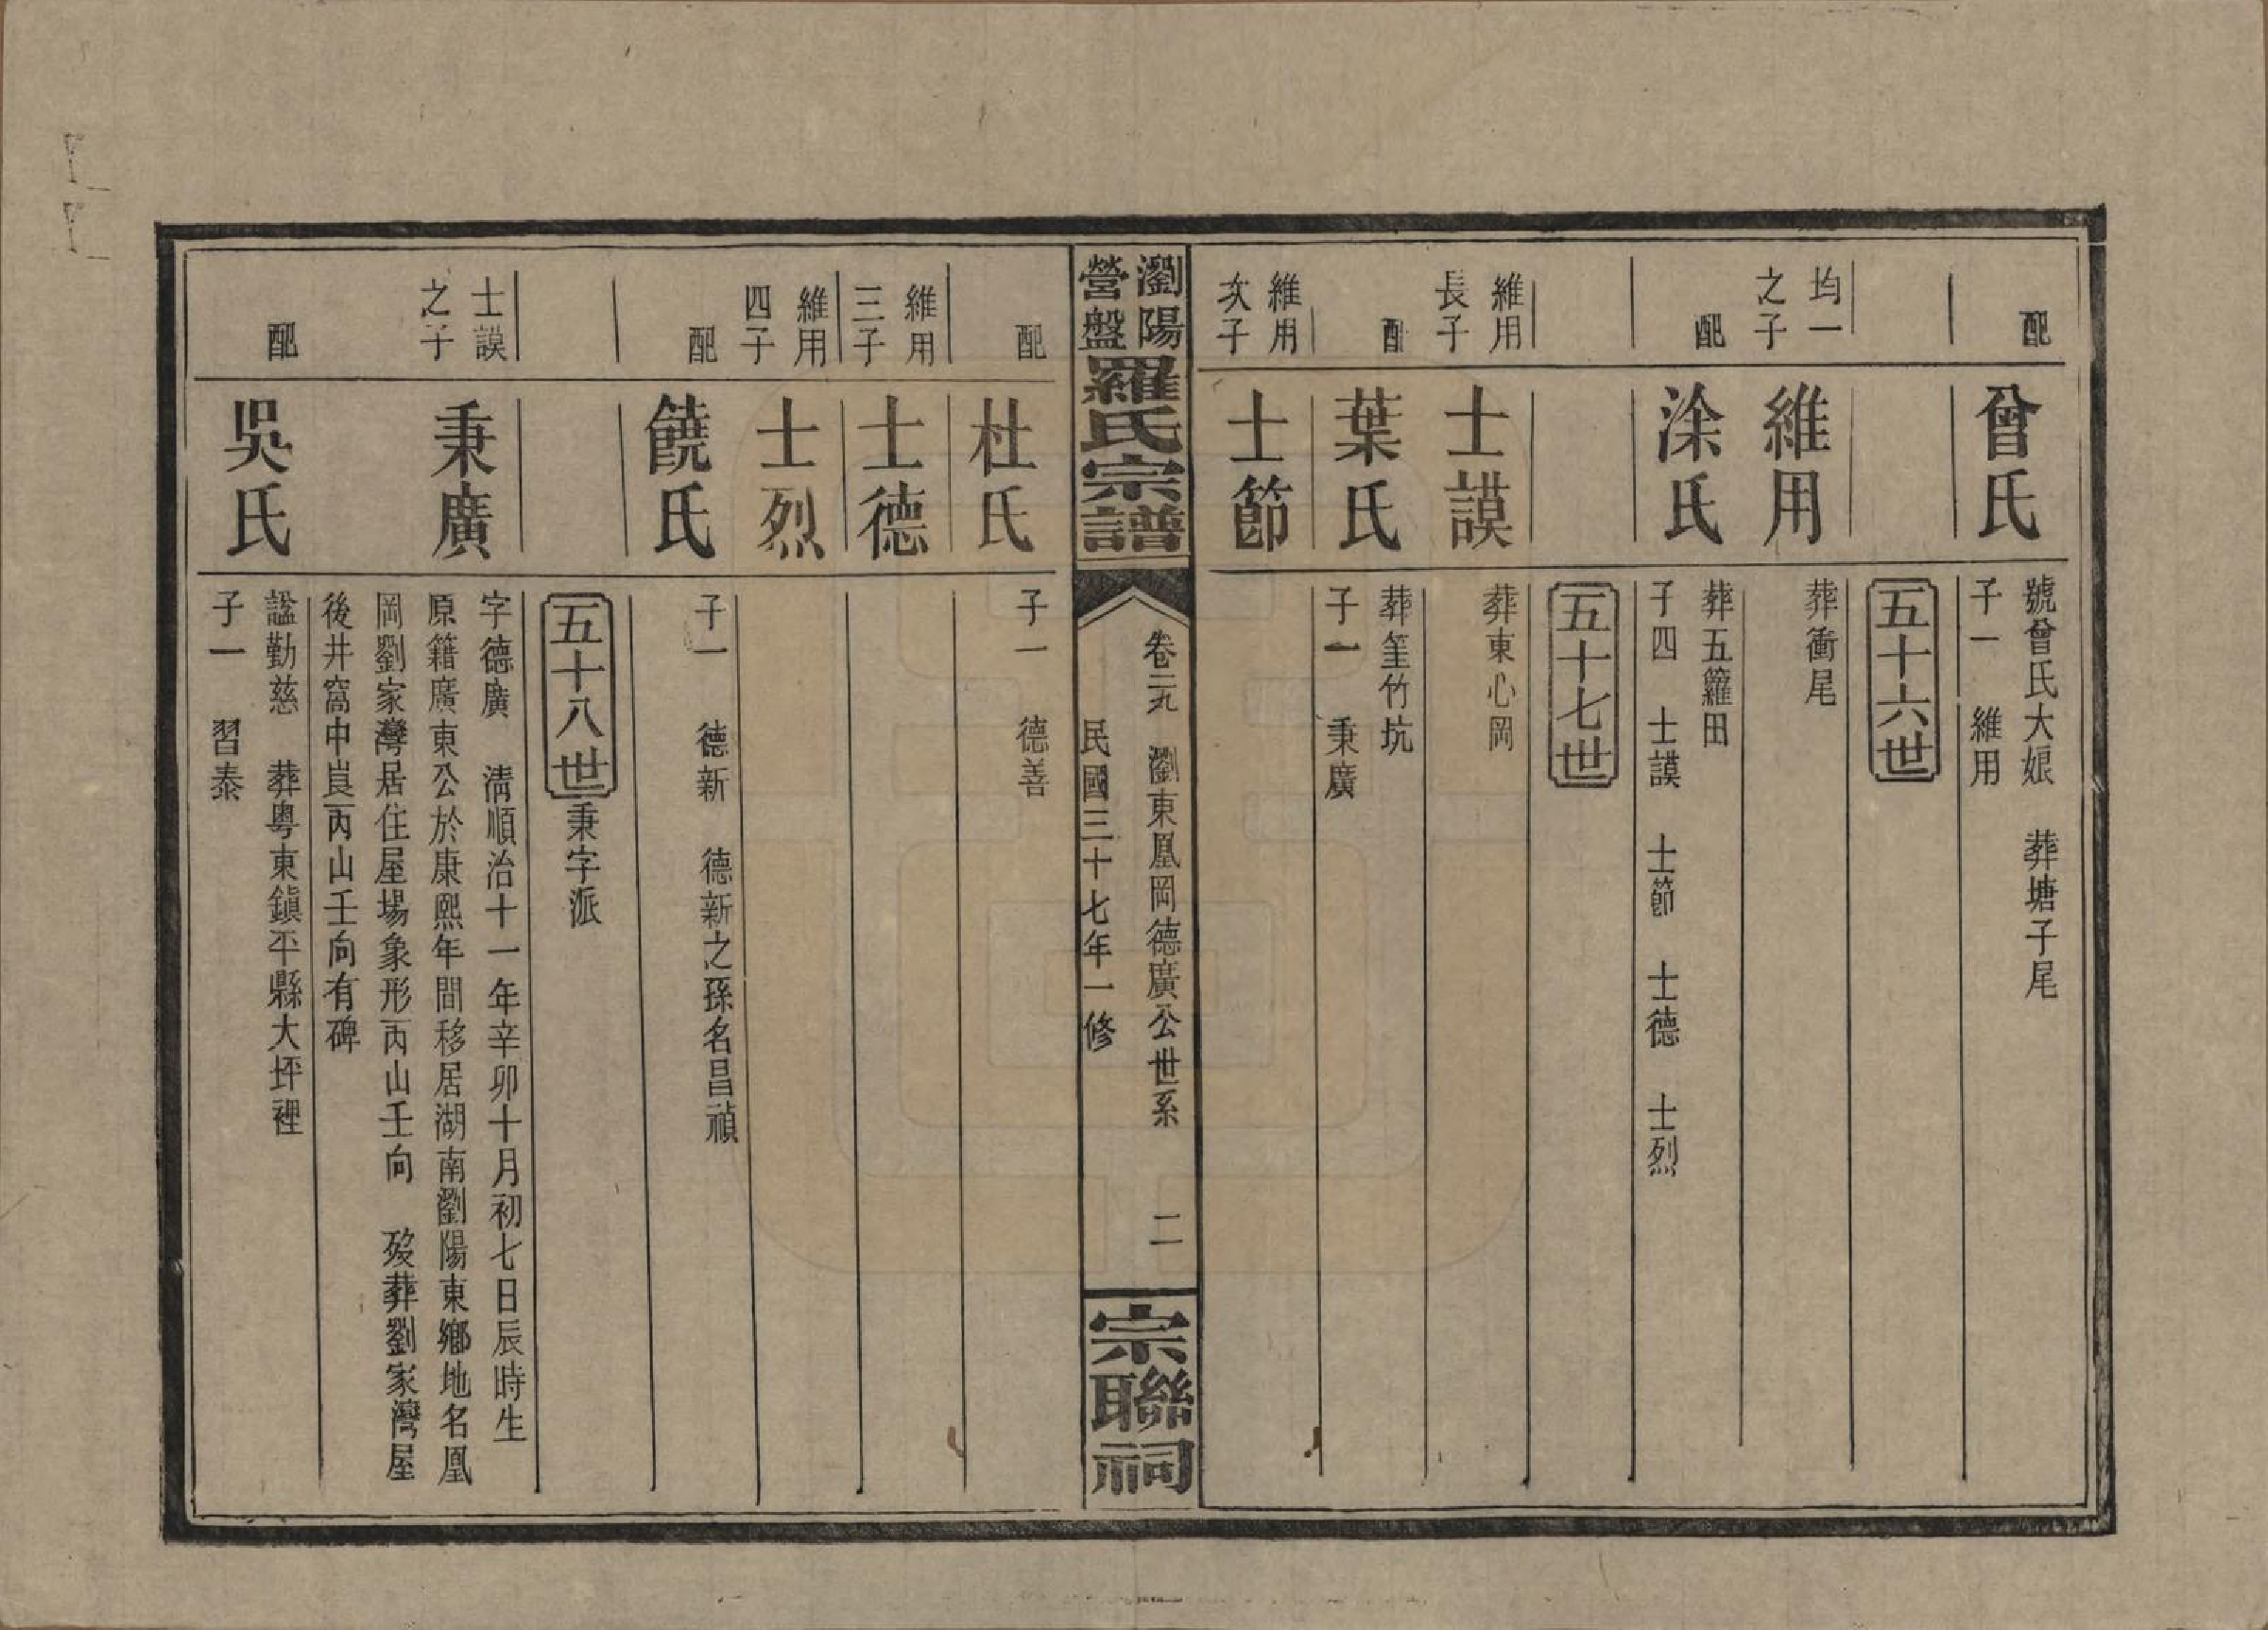 配
曾氏
號曾氏大娘　葬塘子尾
子一　維用
五十六世
均一
之子
維用
葬衝尾
配
涂氏
葬五籮田
子四　士謨　士節　士德　士烈
五十七世
維用
長子
士謨
葬東心岡
配
葉氏
葬筀竹坑
子一　秉廣
維用
次子
士節
瀏陽
營盤
羅氏宗譜
卷二九　瀏東凰岡德廣公世系　二
民國三十七年一修
宗聯祠
配
杜氏
子一　德善
維用
三子
士德
維用
四子
士烈
配
饒氏
子一　德新　德新之孫名昌禎
五十八世秉字派
士謨
之子
秉廣
字德廣　清順治十一年辛卯十月初七日辰時生
原籍廣東公於康熙年間移居湖南劉陽東鄉地名凰
岡劉家灣居住屋場象形丙山壬向　歿葬劉家灣屋
後井窩中崀丙山壬向有碑
配
吳氏
諡勤慈　葬粵東鎭平縣大坪裡
子一　習泰